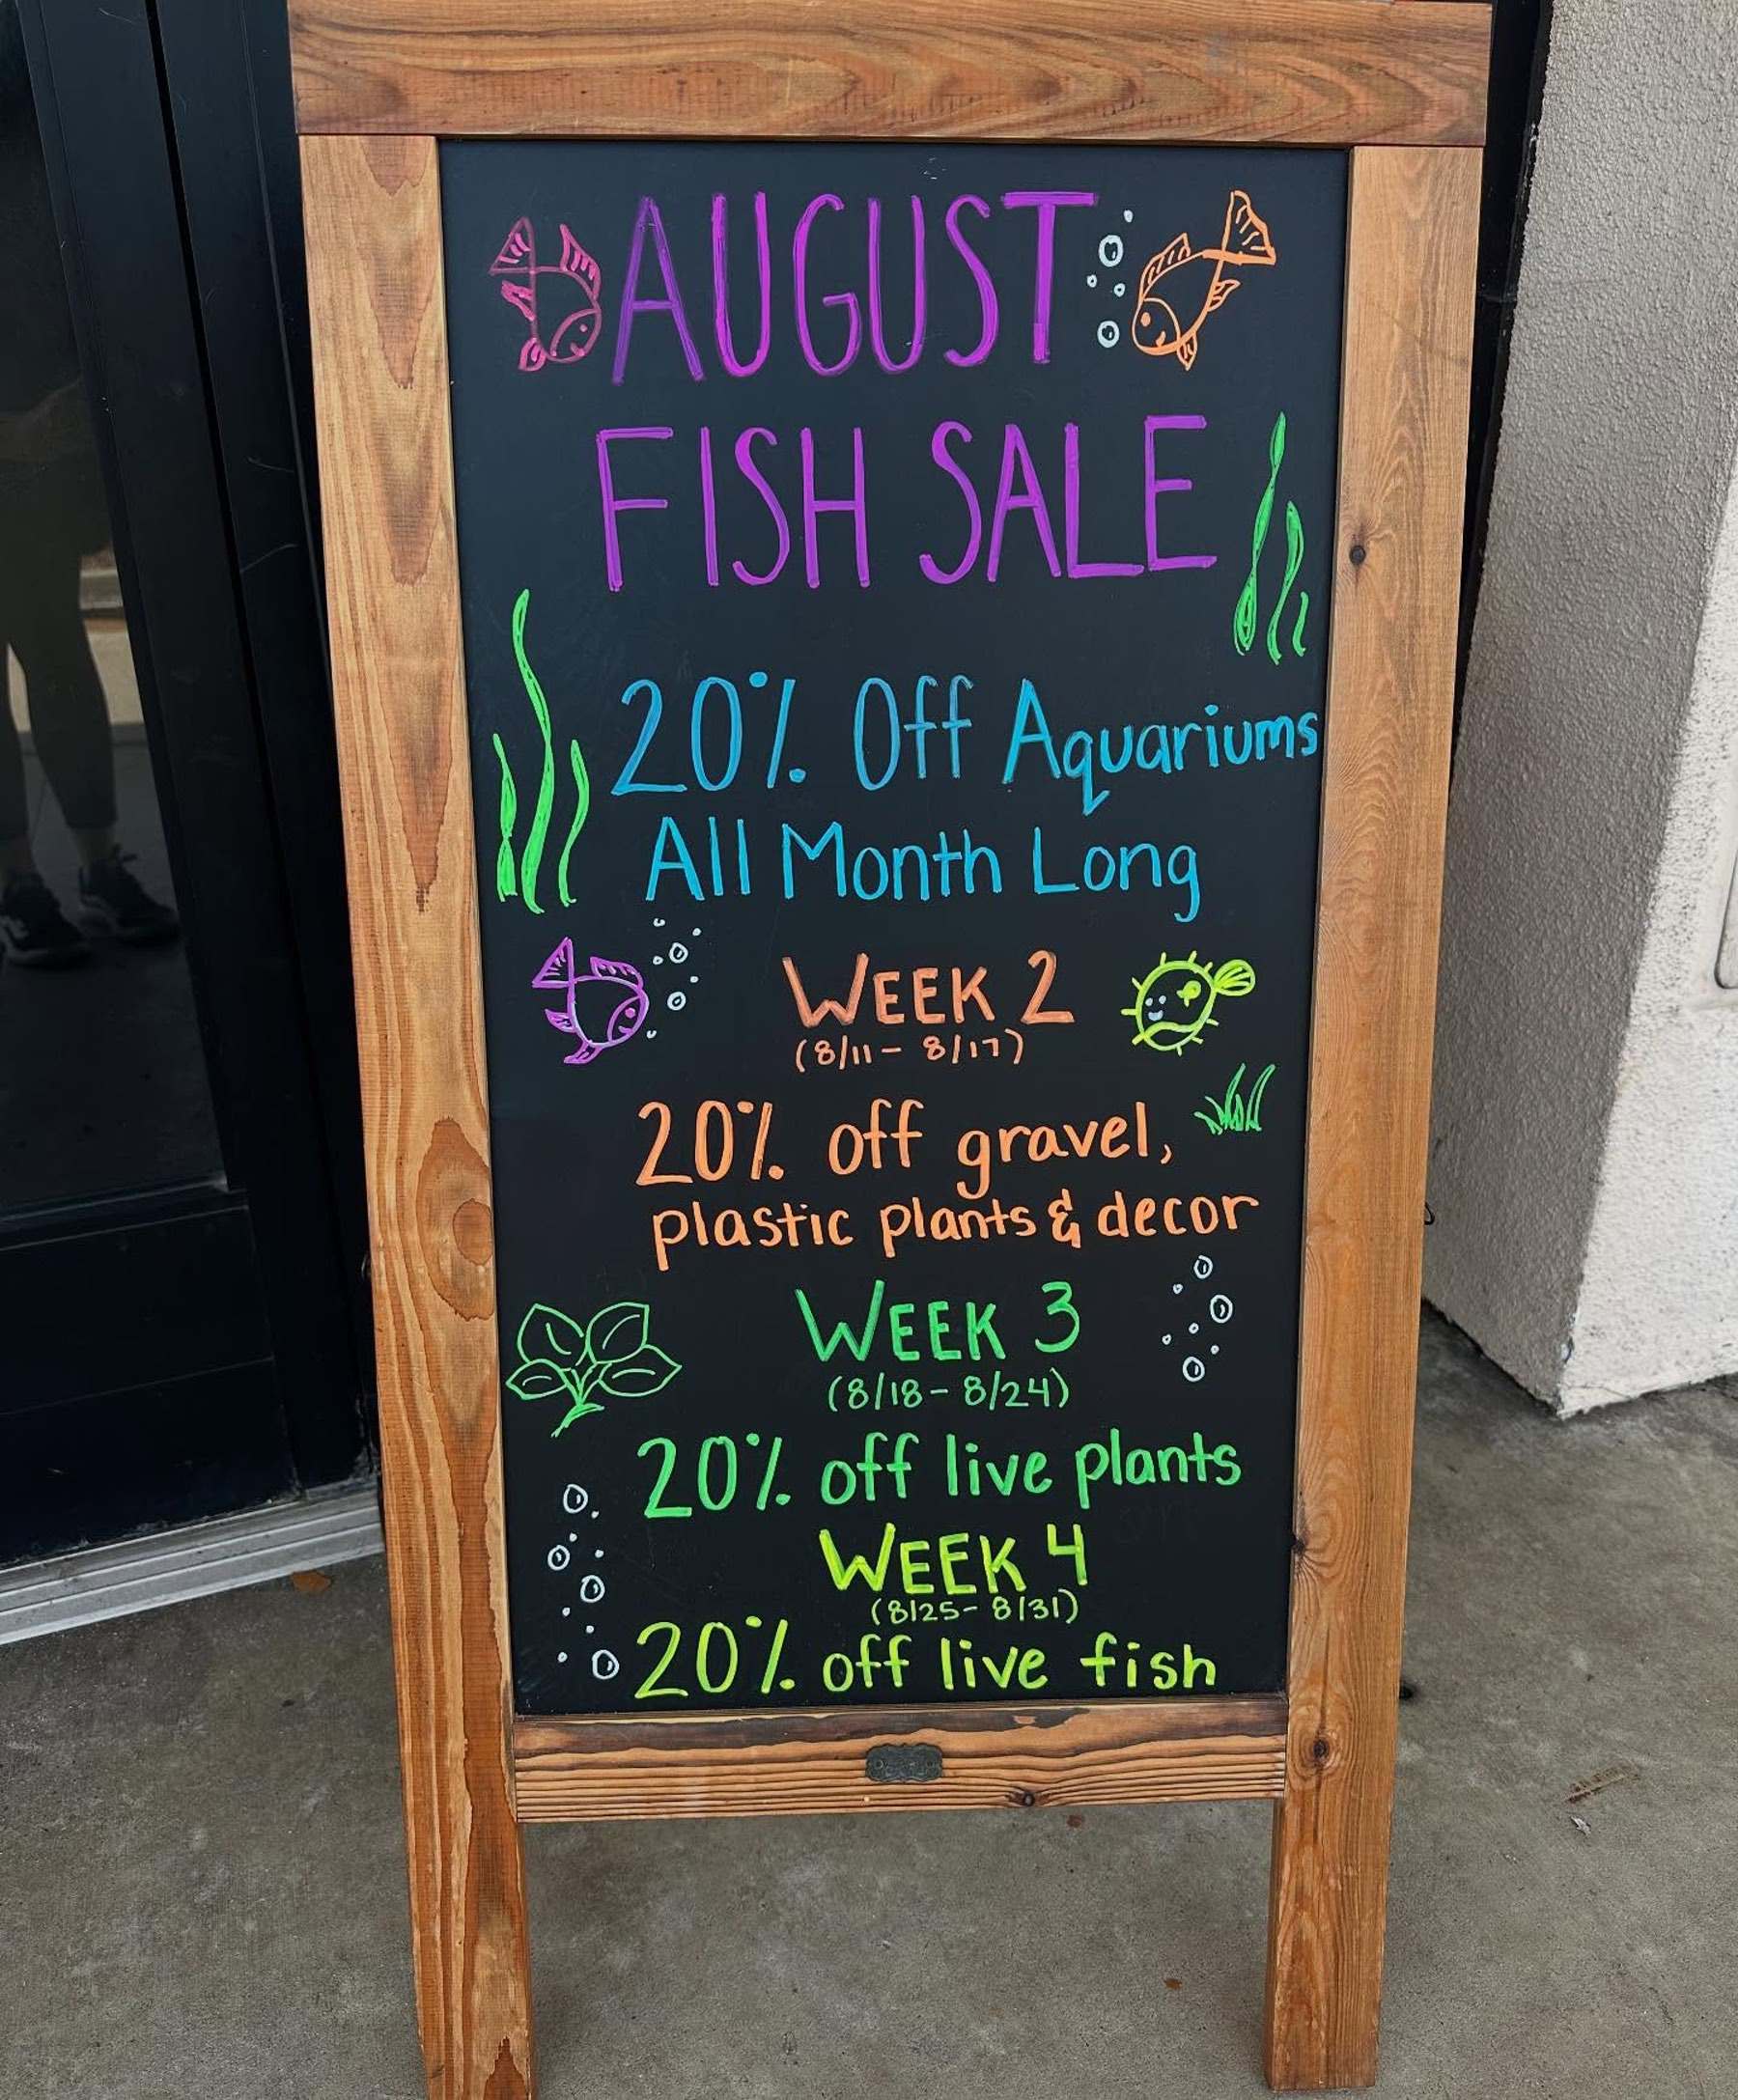 AUGUST
FISH SALE
20% Off Aquariums
All Month Long
WEEK 2
(8/11- 8/17)
20% off gravel,
plastic plants & decor
WEEK 3
(8/18- 8/24)
20% off live plants
WEEK 4
(8/25- 8/31)
20% off live fish